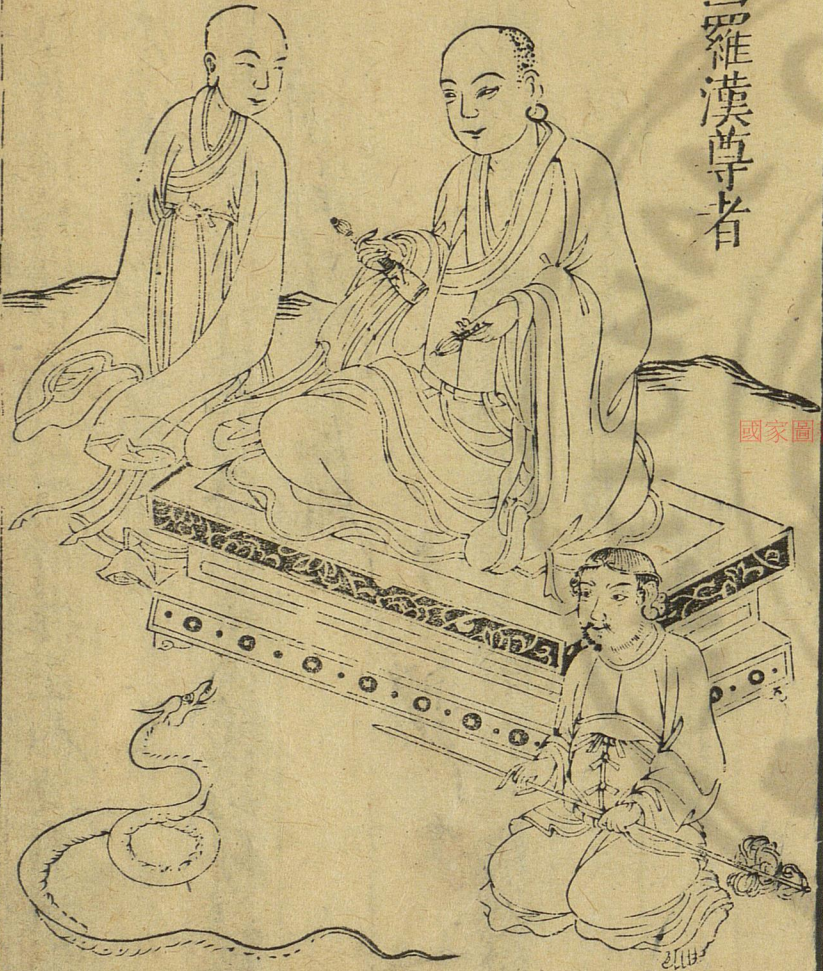 羅漢尊者
國家圖